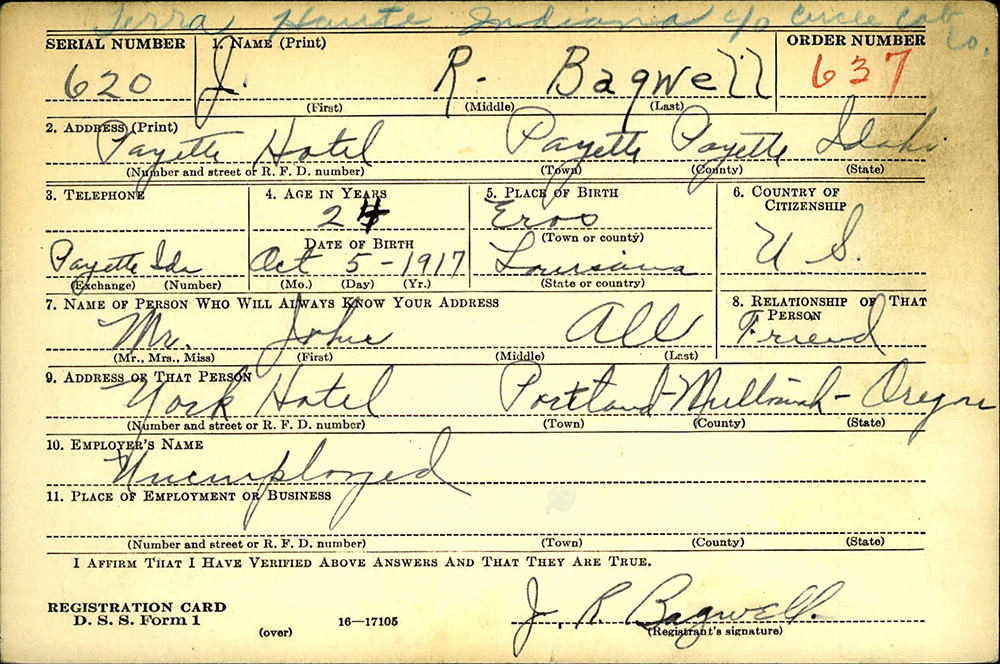 Terra Haute Indiana c/o Circle Cab Co.
SERIAL NUMBER 1. NAME (Print) ORDER NUMBER
620 J. R. Bagwell 637
(First) (Middle) (Last)
2. ADDRESS (Print)
Payette Hotel Payette Payette Idaho
(Number and street or R. F. D. number) (Town) (County) (State)
3. TELEPHONE 4. AGE IN YEARS 5. PLACE OF BIRTH 6. COUNTRY OF CITIZENSHIP
24 Eros
DATE OF BIRTH (Town or county) U S.
Payette Ida Oct 5-1917 Louisiana
(Exchange) (Number) (Mo.) (Day) (Yr.) (State or country)
7. NAME OF PERSON WHO WILL ALWAYS KNOW YOUR ADDRESS 8. RELATIONSHIP OF THAT PERSON
Mr. John All Friend
(Mr., Mrs., Miss) (First) (Middle) (Last)
9. ADDRESS OF THAT PERSON
York Hotel Portland - - Oregon
(Number and street or R. F. D. number) (Town) (County) (State)
10. EMPLOYER'S NAME
Unemployed
11. PLACE OF EMPLOYMENT OR BUSINESS
(Number and street or R. F. D. number) (Town) (County) (State)
I AFFIRM THAT I HAVE VERIFIED ABOVE ANSWERS AND THAT THEY ARE TRUE.
REGISTRATION CARD
D. S. S. Form 1 (over) 16—17105 J. R. Bagwell.
(Registrant's signature)